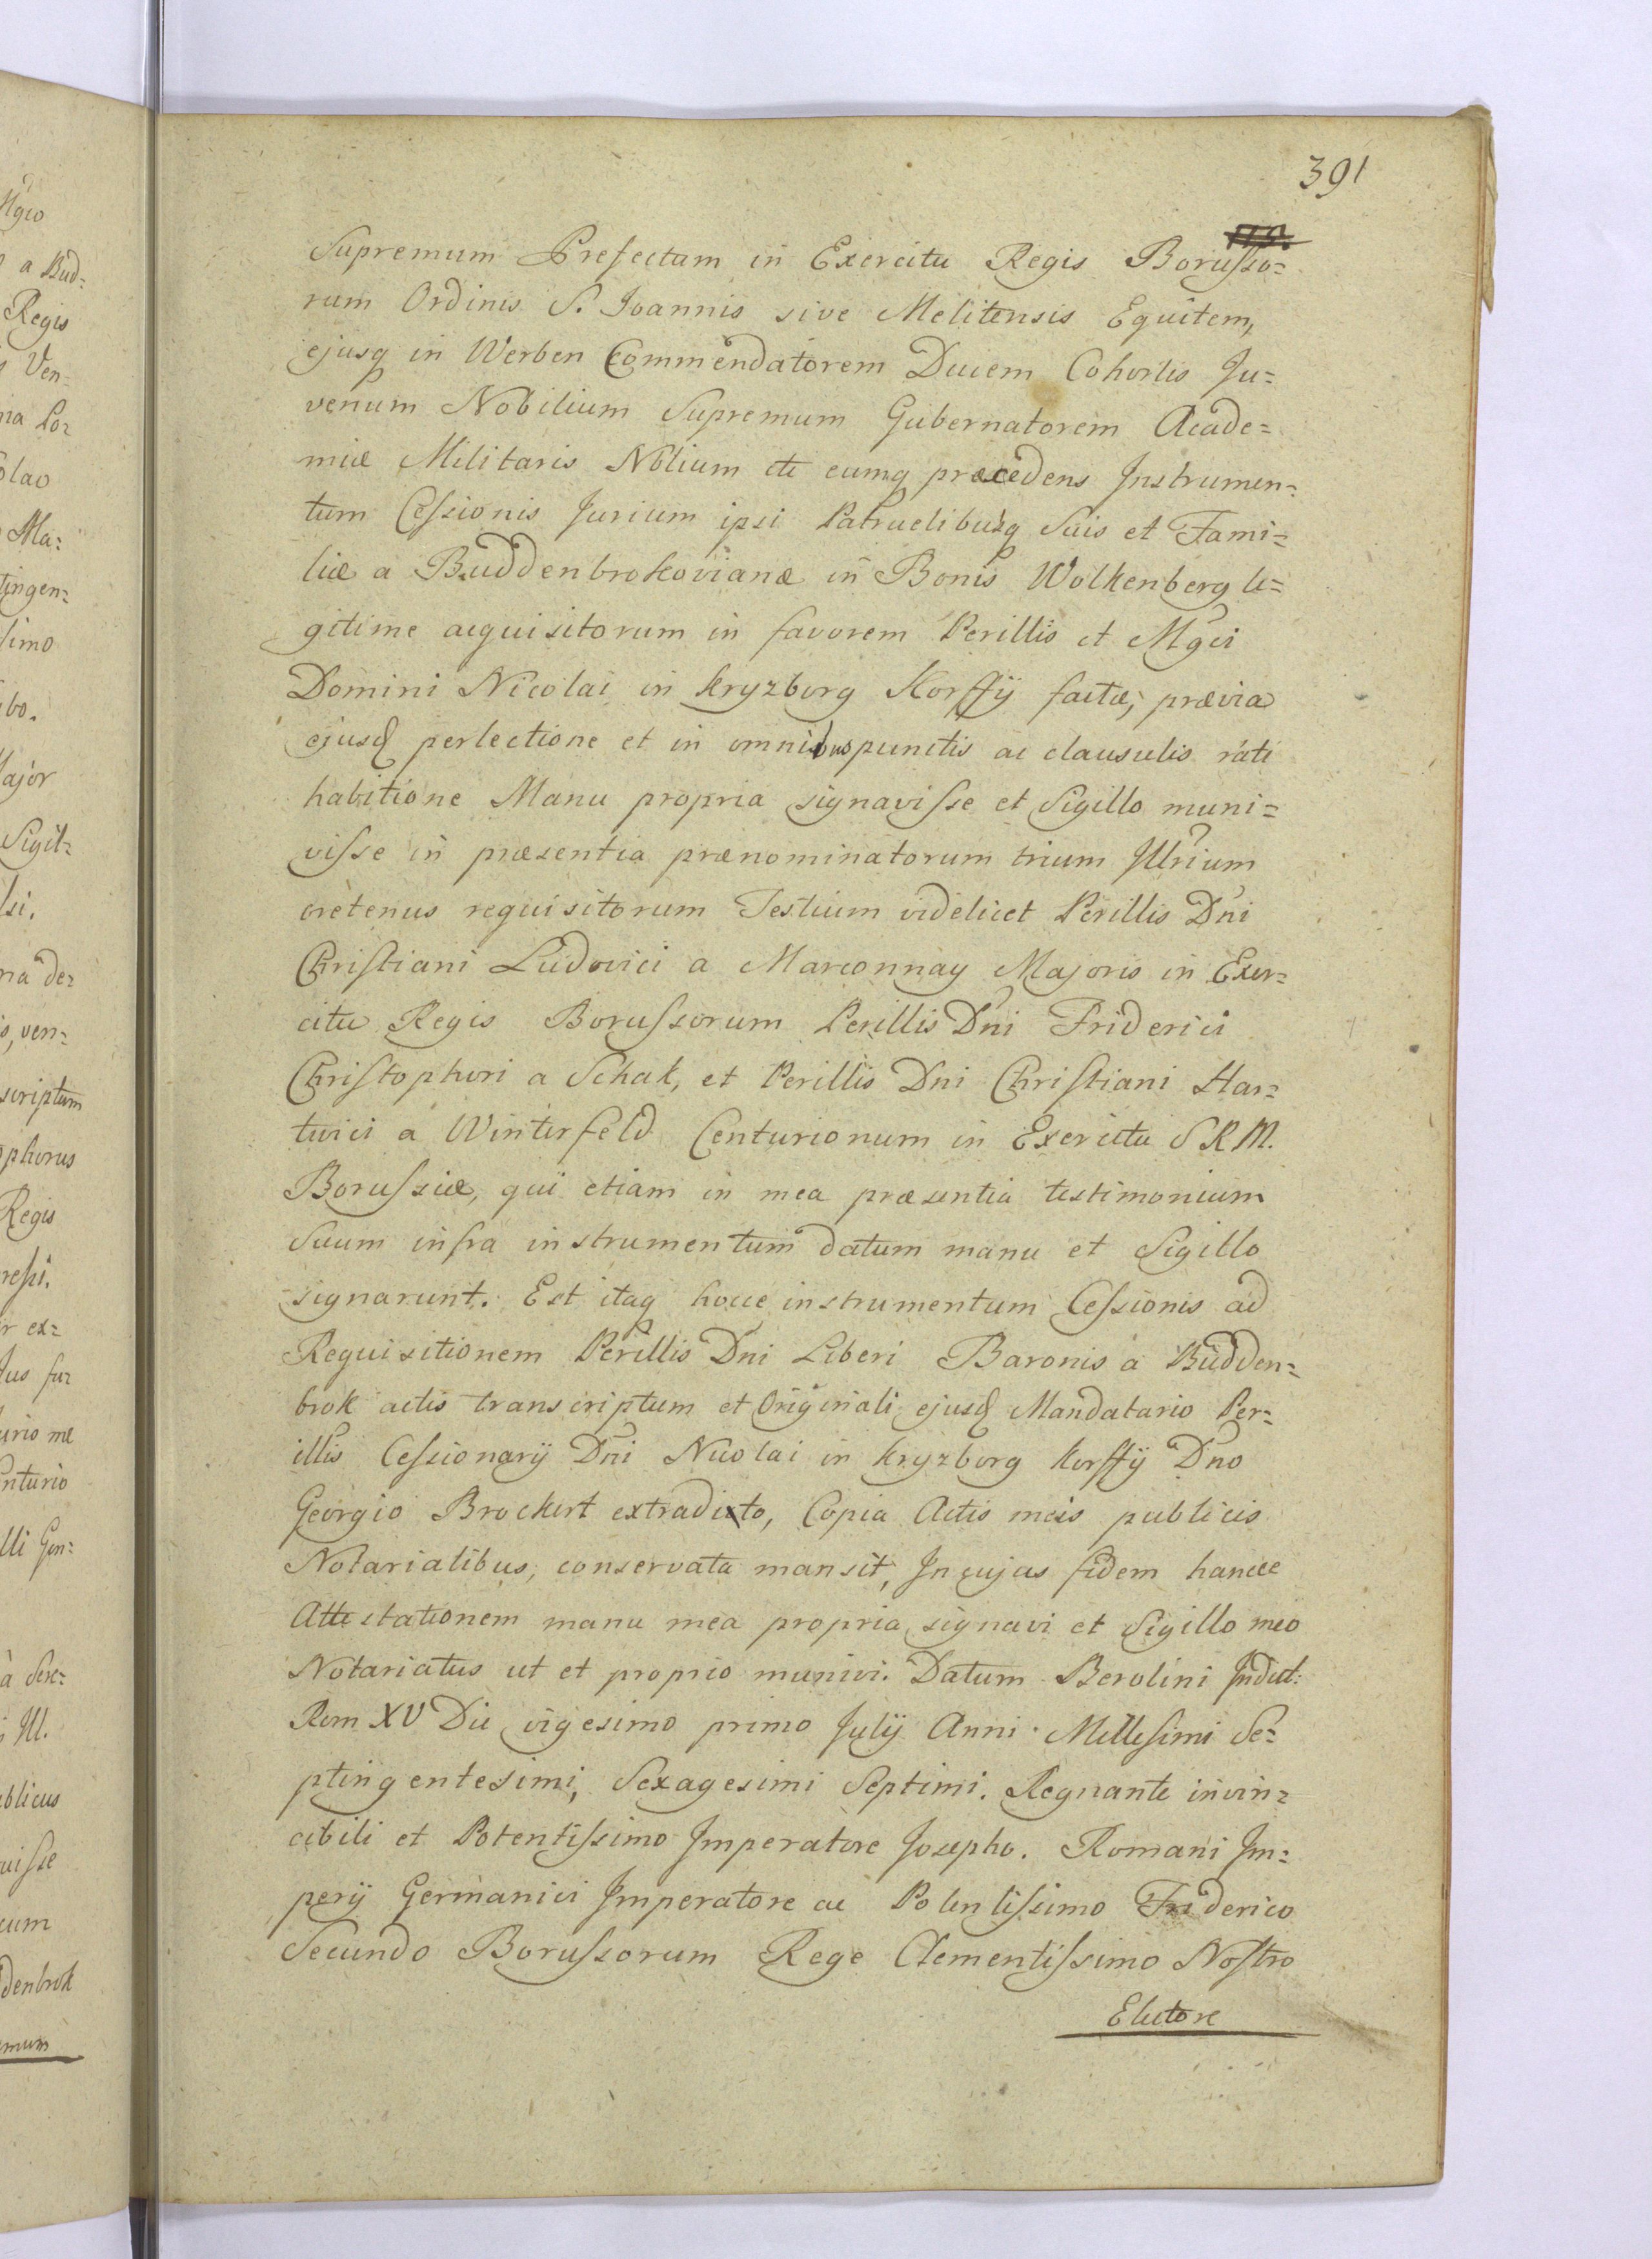 391
Supremum Prefectum in Exercitu Regis Borusso=
rum Ordinis S. Joannis sive Melitensis Equitem,
ejusq in Werben Commendatorem Ducem Cohortis Ju=
venum Nobilium Supremum Gubernatorem Acade=
miæ Militaris Nblium etc eumq præcedens Instrumen=
tum Cessionis Jurium ipsi Patruelibusq Suis et Fami=
liæ a Buddenbrokovianæ in Bonis Wolkenberg le=
gitime acquisitorum in favorem Perillis et Mgci
Domini Nicolai in Kryzborg Korffÿ factæ, prævia
ejusd perlectione et in omnibus punctis ac clausulis rati
habitione Manu propria signavisse et Sigillo muni=
visse in præsentia prænominatorum trium Illrium
oretenus requisitorum Testium videlicet Perillis Dni
Christiani Ludovici a Marconnay Majoris in Exer=
citu Regis Borussorum Perillis Dni Friderici
Christophori a Schak, et Perillis Dni Christiani Har=
tvici a Winterfeld Centurionum in Exercitu S R M.
Borussiæ, qui etiam in mea præsentia testimonium
Suum infra instrumentum datum manu et Sigillo
signarunt. Est itaq hocce instrumentum Cessionis ad
Requisitionem Perillis Dni Liberi Baronis a Budden=
brok actis transcriptum et Originali ejusd Mandatario Per=
illis Cessionarÿ Dni Nicolai in Kryzborg Korffÿ Dno
Georgio Brockert extradito, Copia Actis meis publicis
Notarialibus, conservata mansit, In cujas fidem hancce
Attestationem manu mea propria signavi et Sigillo meo
Notariatus ut et proprio munivi. Datum Berolini Indict:
Rom XV Die vigesimo primo Julÿ Anni Millesimi Se=
ptingentesimi, Sexagesimi Septimi. Regnante invin=
cibili et Potentissimo Imperatore Josepho. Romani Im=
perÿ Germanici Imperatore ac Potentissimo Friderico
Secundo Borussorum Rege Clementissimo Nostro
Electore